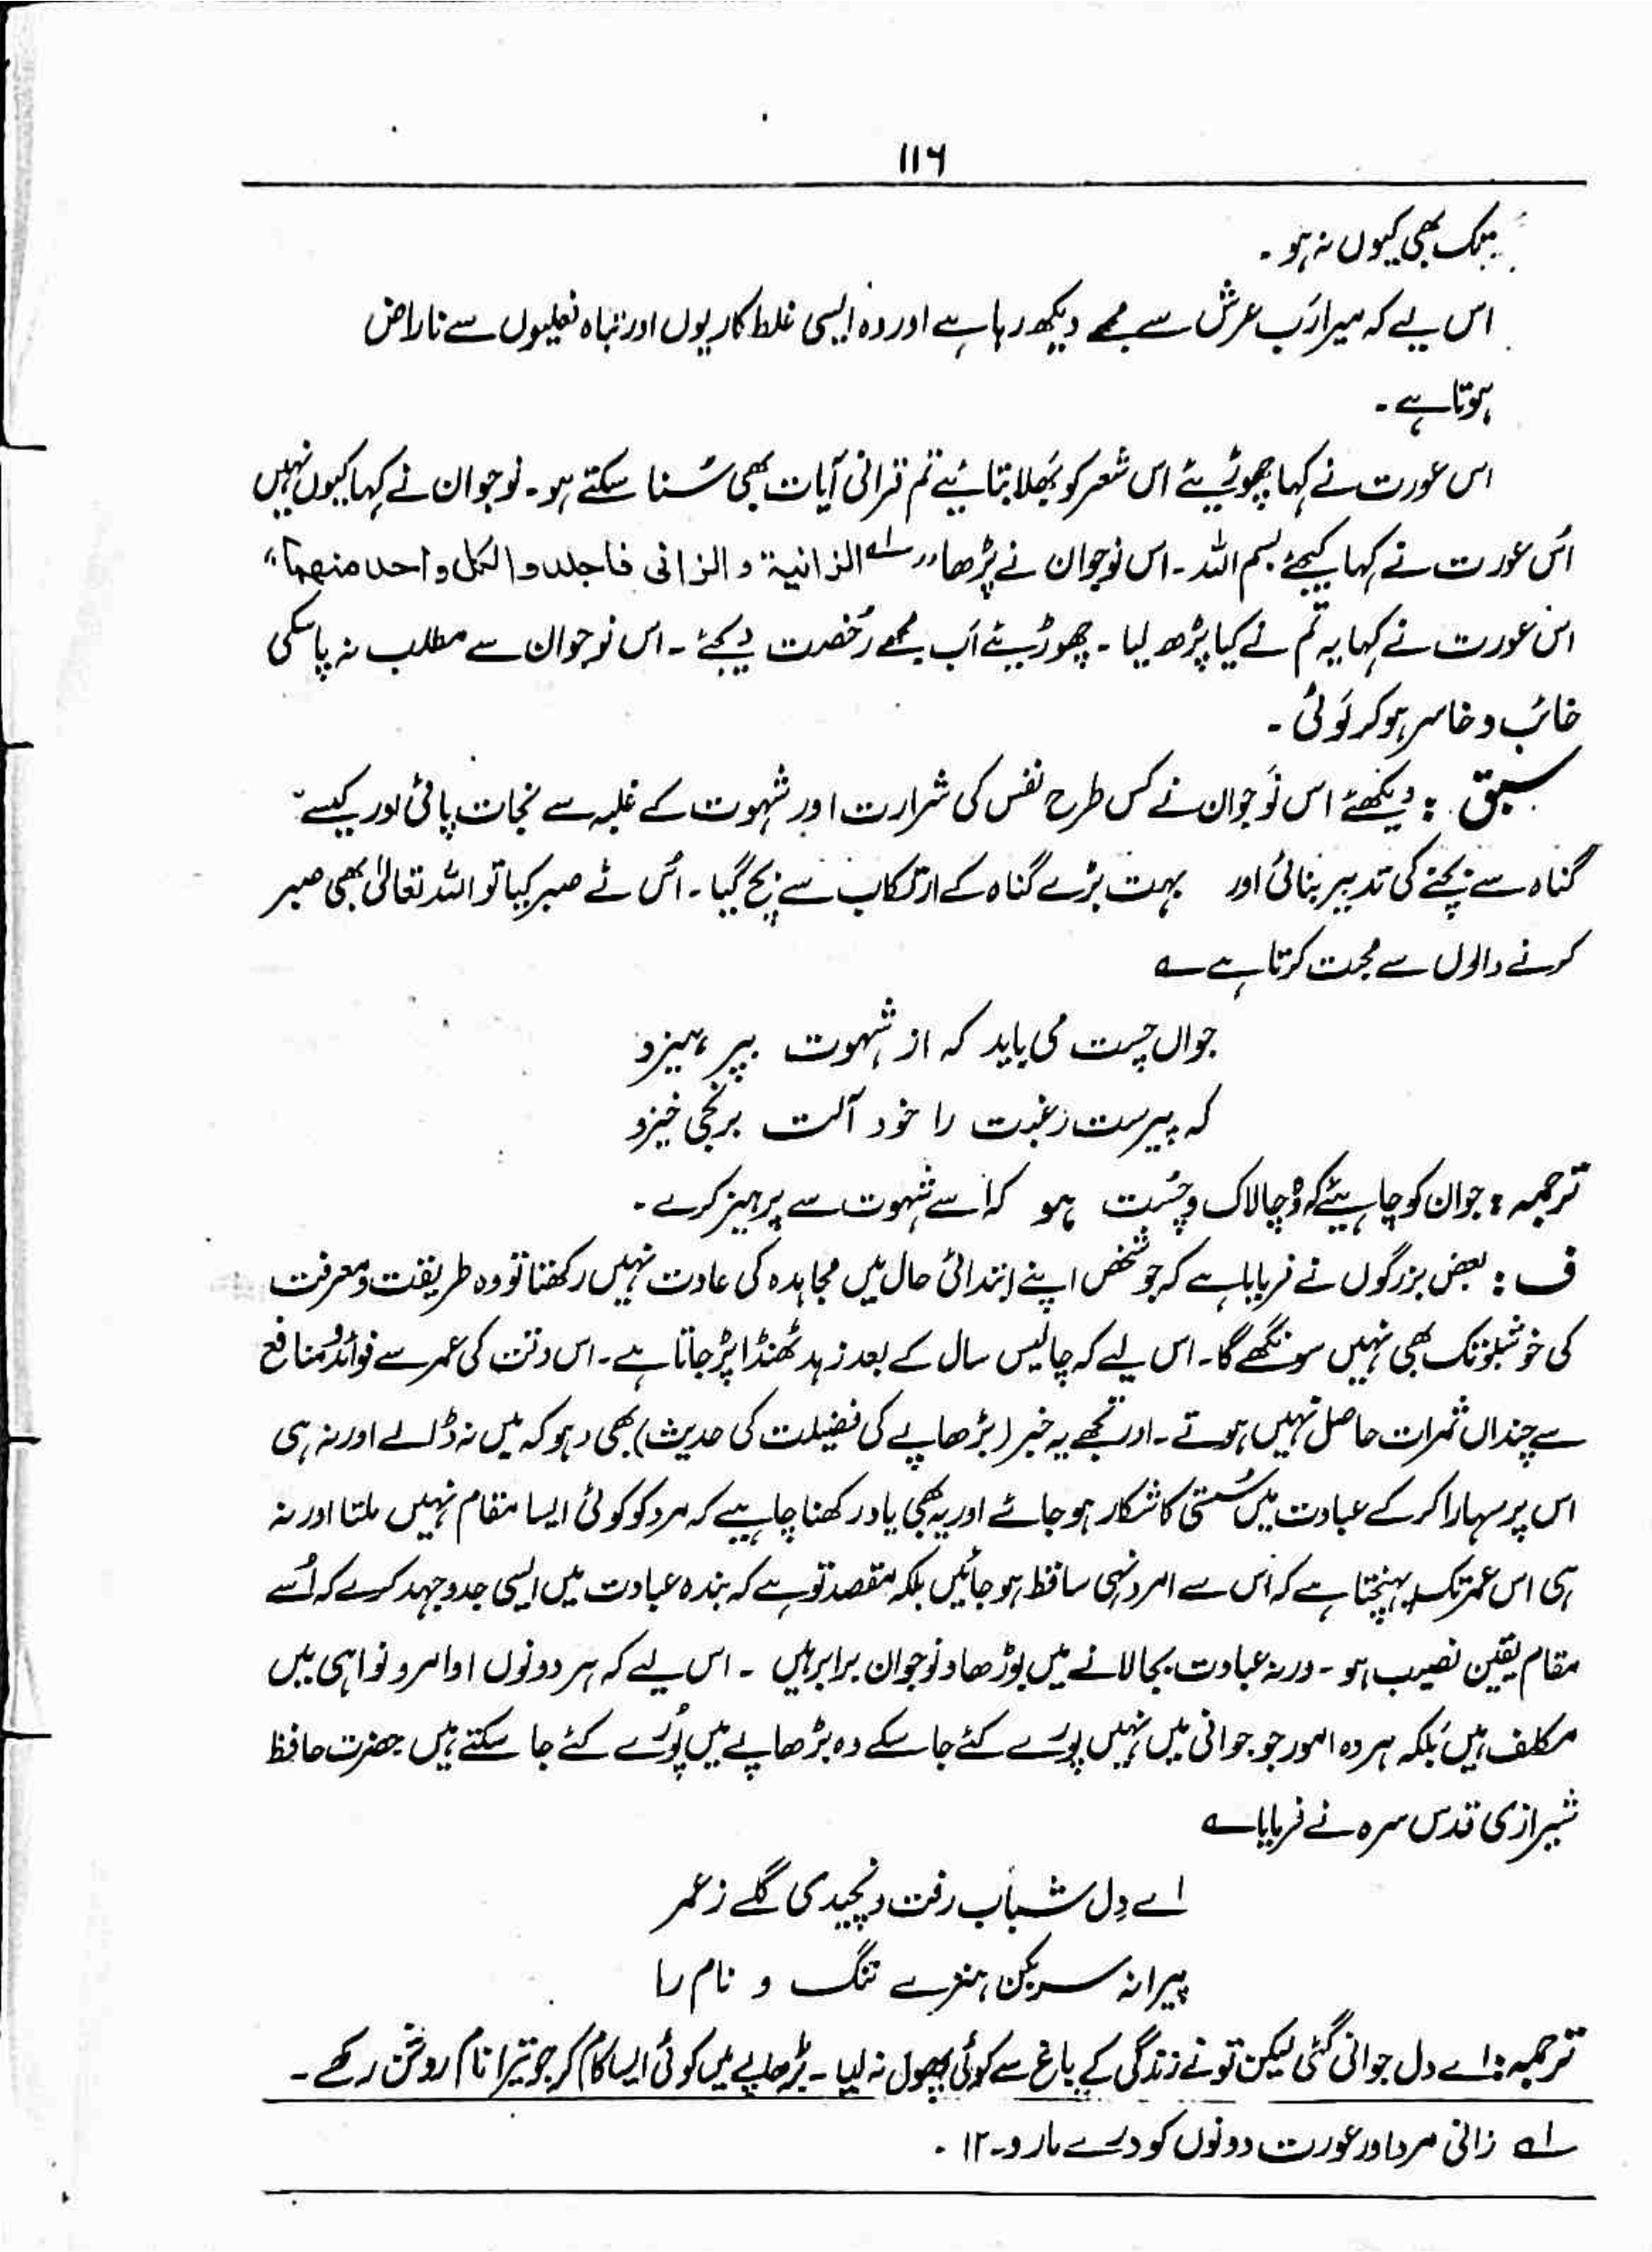 ۱۱۶
بھی کیوں نہ ہو ۔
اس لیے کہ میرا رَب عرش سے مجھے دیکھ رہا ہے اور وہ ایسی غلط کاریوں اور تباہ فعلیوں سے ناراض
ہوتا ہے ۔
اس عورت نے کہا چھوڑیئے اس شعر کو بَھلا بتائیے تم قرآنی آیات بھی سُنا سکتے ہو ۔ نوجوان نے کہا کیوں نہیں
اُس عورت نے کہا کیجئے بسم اللہ ۔ اس نوجوان نے پڑھا ،، لہ الزانیۃ والزانی فاجلدوا لکل واحد منھما ،،
اس عورت نے کہا یہ تم نے کیا پڑھ لیا ۔ چھوڑیئے اَب مجھے رُخصت دیجئے ۔ اس نوجوان سے مطلب نہ پا سکی
خائب و خاسر ہو کر لَوٹی ۔
سبق : دیکھئے اس نَوجوان نے کس طرح نفس کی شرارت اور شہوت کے غلبہ سے نجات پائی اور کیسے
گناہ سے بچنے کی تدبیر بنائی اور بہت بڑے گناہ کے ارتکاب سے بچ گیا ۔ اُس نے صبر کیا تو اللہ تعالیٰ بھی صبر
کرنے والوں سے محبت کرتا ہے ؎
جواں چست می باید کہ از شہوت بپرہیزد
کہ پیرست رغبت را خود آلت برنجی خیزد
ترجمہ : جوان کو چاہیئے کہ وُہ چالاک و چُست ہو کہ اسے شہوت سے پرہیز کرے ۔
ف : بعض بزرگوں نے فرمایا ہے کہ جو شخص اپنے ابتدائی حال میں مجاہدہ کی عادت نہیں رکھتا تو وہ طریقت و معرفت
کی خوشبو تک بھی نہیں سونگھے گا ۔ اس لیے کہ چالیس سال کے بعد زہد ٹھنڈا پڑ جاتا ہے ۔ اس وقت کی عمر سے فوائد و منافع
سے چنداں ثمرات حاصل نہیں ہوتے ۔ اور تجھے یہ خبر (بڑھاپے کی فضیلت کی حدیث) بھی دہوکہ میں نہ ڈالے اور نہ ہی
اس پر سہارا کر کے عبادت میں سُستی کا شکار ہو جائے اور یہ بھی یاد رکھنا چاہیے کہ مرد کو کوئی ایسا مقام نہیں ملتا اور نہ
ہی اس عمر تک پہنچتا ہے کہ اُس سے امر و نہی ساقط ہو جائیں بلکہ مقصد تو ہے کہ بندہ عبادت میں ایسی جدوجہد کرے کہ اُسے
مقام یقین نصیب ہو ۔ ورنہ عبادت بجا لانے میں بوڑھا و نوجوان برابر ہیں ۔ اس لیے کہ ہر دونوں اوامر و نواہی میں
مکلف ہیں بلکہ ہر وہ امور جو جوانی میں نہیں پورے کئے جا سکے وہ بڑھاپے میں پُورے کئے جا سکتے ہیں حضرت حافظ
شیرازی قدس سرہ نے فرمایا ؎
اے دِل شباب رفت و نچیدی گلے ز عمر
پیرانہ سر بکن ہنرے ننگ و نام را
ترجمہ : اے دل جوانی گئی لیکن تو نے زندگی کے باغ سے کوئی پھول نہ لیا ۔ بڑھاپے میں کوئی ایسا کام کر جو تیرا نام روشن رکھے ۔
لہ زانی مرد اور عورت دونوں کو درے مارو ۔ ۱۲ ۔